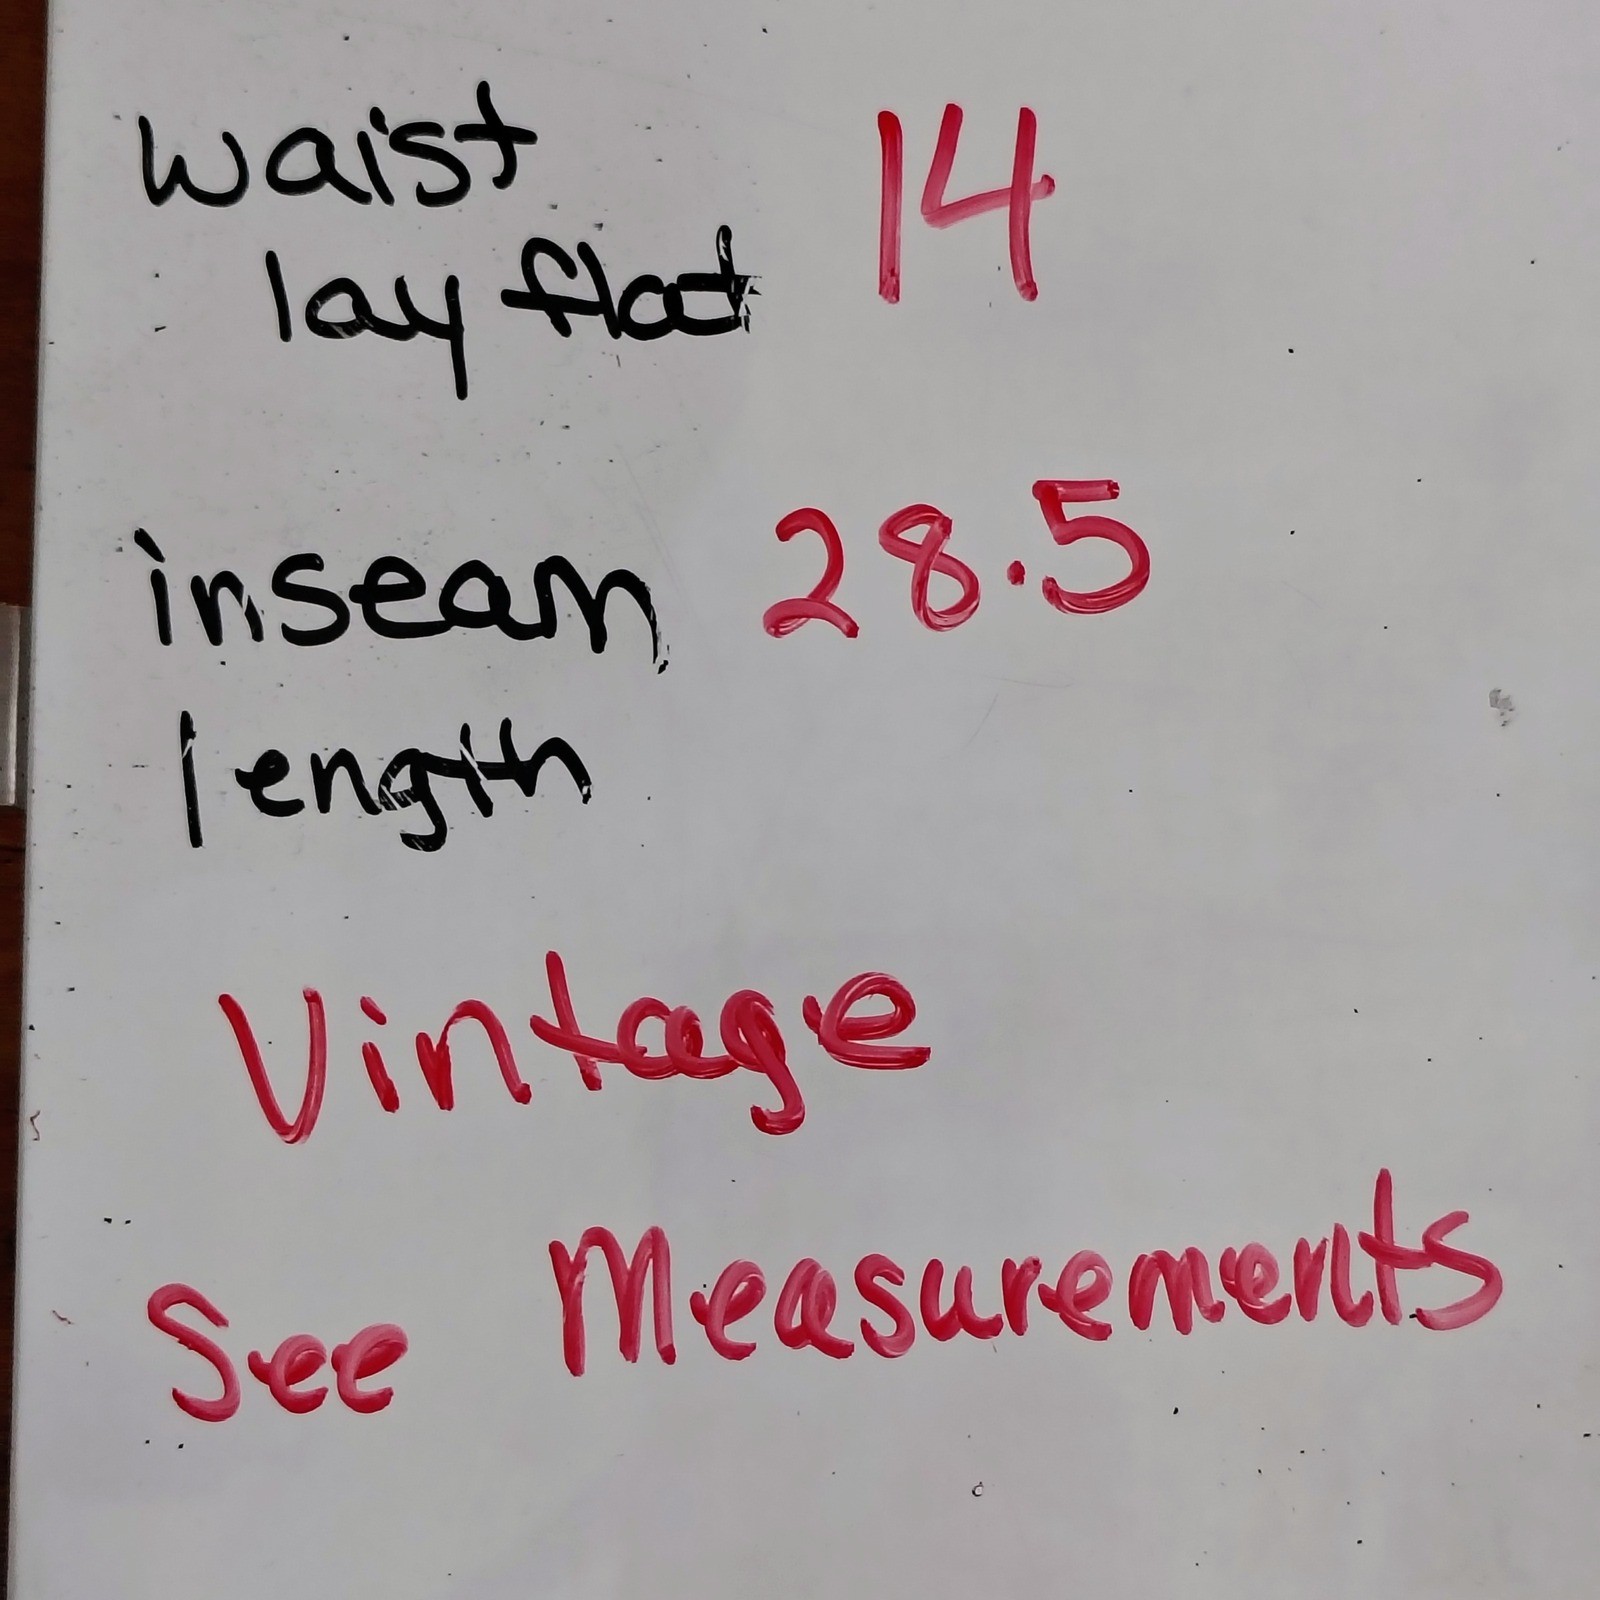 waist 14
lay flat
inseam 28.5
length
Vintage
See Measurements